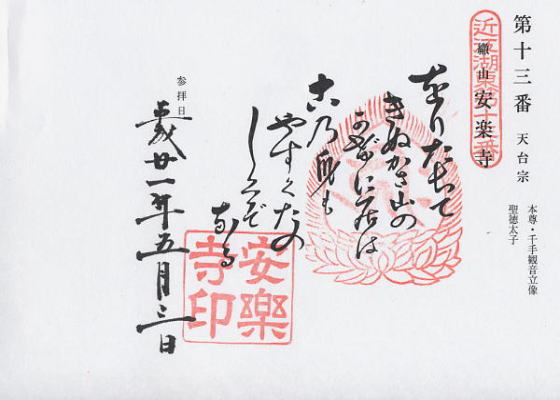 第十三番 天台宗
本尊・千手観音立像
聖徳太子
近江湖東第十三番
繖山 安楽寺
をりたちて
きぬかさ山の
に居は
古乃身も
やすくたの
しくぞ
なる
安樂寺印
参拝日
廿一年五月三日